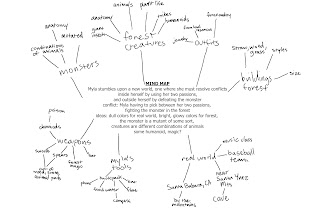 animals
plant life
anatomy
poles
humanoids
anatomy
mutated
combinations
of animals
forest
creatures
outfits
monsters
MIND MAP
Myla stumbles upon a new world, one where she must resolve conflicts
inside herself by using her two passions,
and outside herself by defeating the monster
conflict: Myla having to pick between her two passions,
fighting the monster in the forest
ideas: dull colors for real world, bright, glowy colors for forest,
the monster is a mutant of some sort,
creatures are different combinations of animals
some humanoid, magic?
straw, wood,
grass
styles
size
buildings
forest
poison
chemicals
weapons
swords
spears
bow
magic
Myla's
tools
food
water
backpack
bow
compass
real world
music class
baseball
team
Santa Barbara, CA
by the
mountains
near
Santa Ynez
Mtn
cave